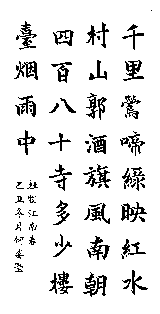 千里鶯啼綠映紅水
村山郭酒旗風南朝
四百八十寺多少樓
臺烟雨中
杜牧江南春
己丑冬月何